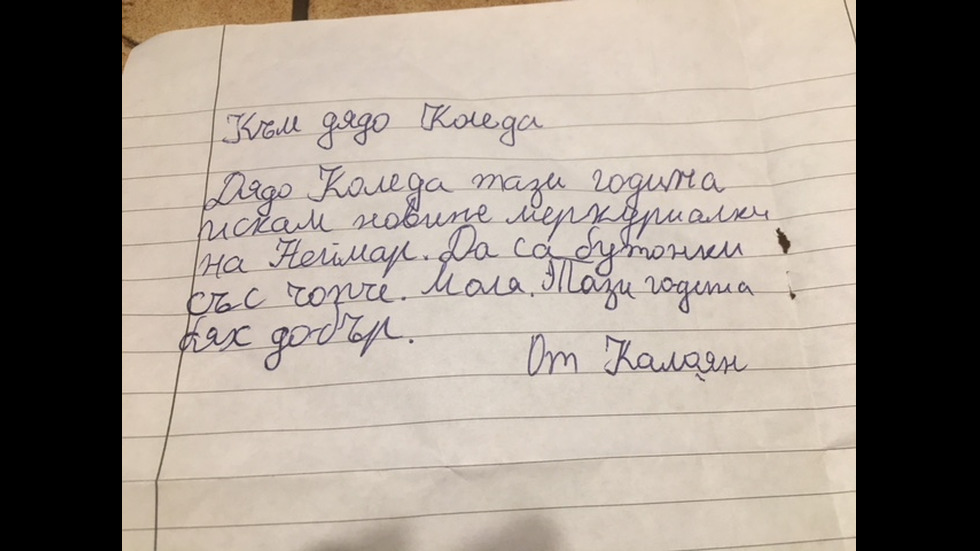 Към дядо Коледа
Дядо Коледа тази година
искам новите меркуриалки
на Неймар. Да са бутонки
със чопче. Моля. Тази година
бях добър.
От Калаян